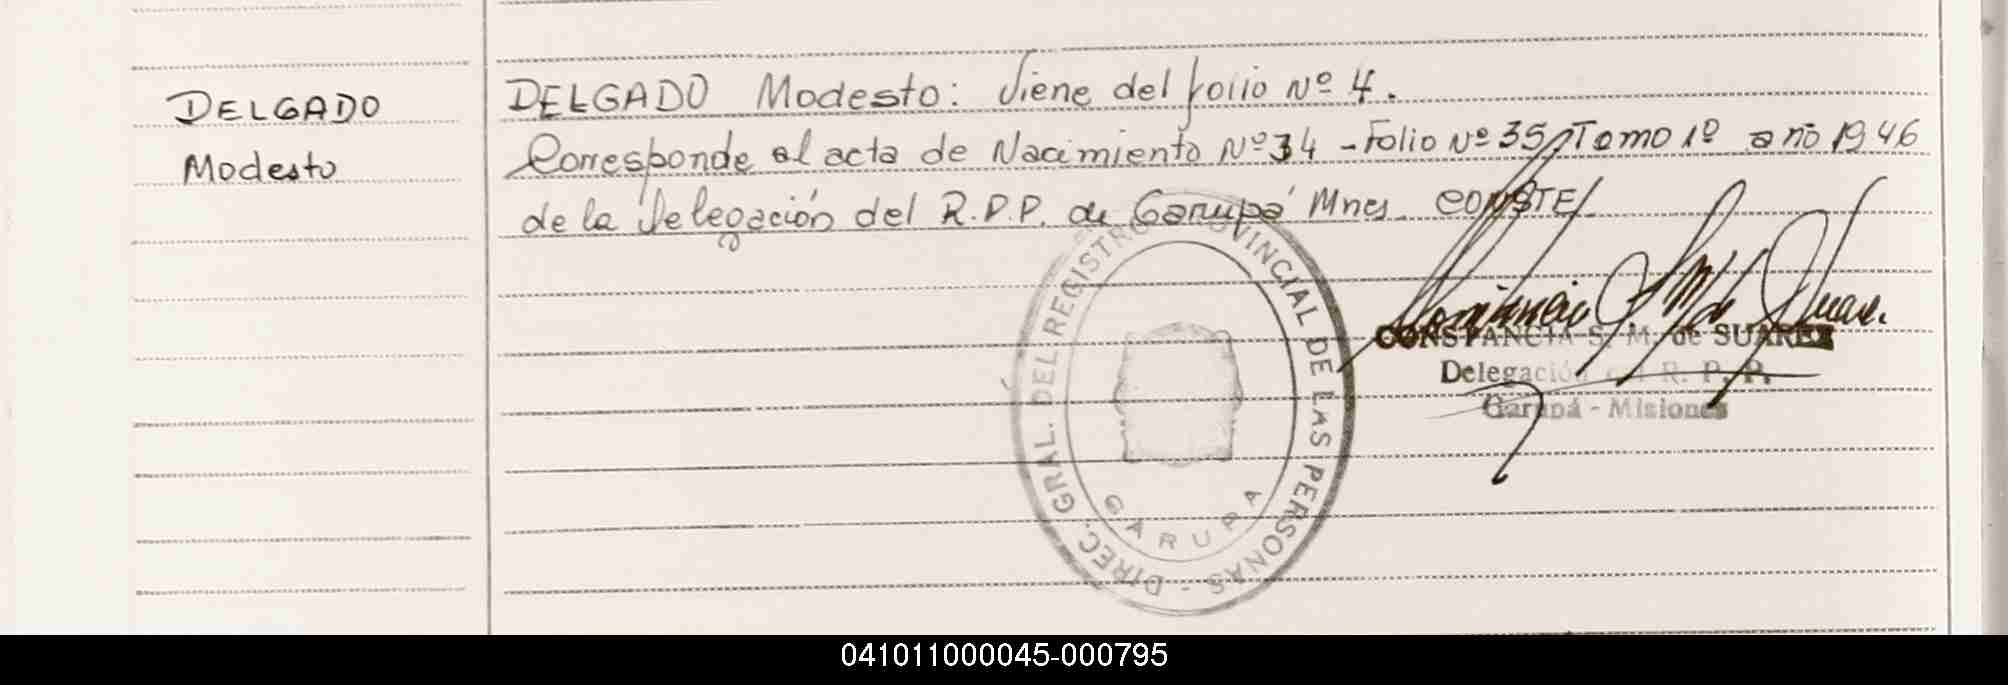 DELGADO
Modesto
DELGADO Modesto: Viene del folio Nº 4.
Corresponde al acta de Nacimiento Nº 34 - Folio Nº 35 Tomo 1º año 1946
de la Delegación del R.P.P. de Garupá Mnes. CONSTE.
DIREC. GRAL. DEL REGISTRO PROVINCIAL DE LAS PERSONAS -
GARUPA
CONSTANCIA S. M. de SUAREZ
Delegación del R. P. P.
Garupá - Misiones
041011000045-000795